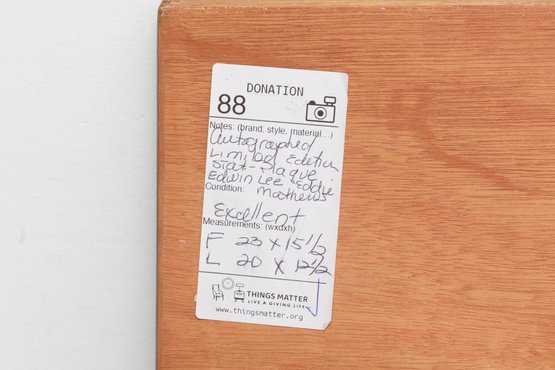 DONATION
88
Notes: (brand, style, material...)
Autographed
Limited Edition
Stat-Plaque
Edwin Lee "Eddie
Condition: Mathews
Excellent
Measurements: (wxdxh)
F 23 x 15 1/2
L 20 x 12 1/2
THINGS MATTER
LIVE A GIVING LIFE
www.thingsmatter.org